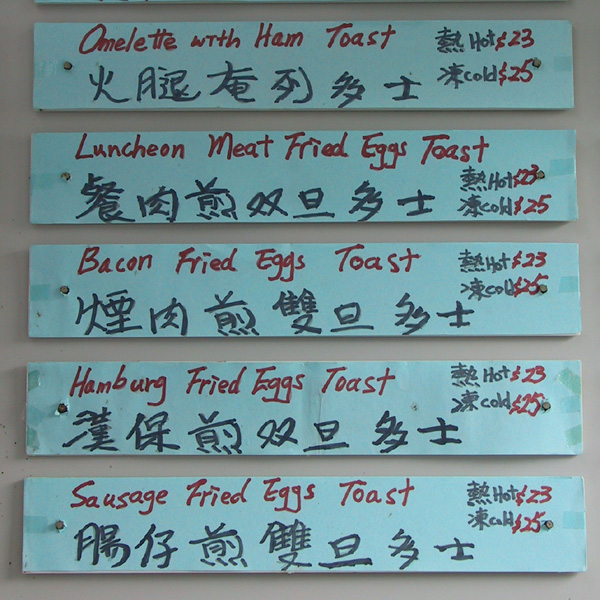 Omelette with Ham Toast 熱Hot$23
火腿奄列多士 凍cold$25
Luncheon Meat Fried Eggs Toast
熱Hot$23
餐肉煎双旦多士 凍cold$25
Bacon Fried Eggs Toast 熱Hot$23
煙肉煎雙旦多士 凍cold$25
Hamburg Fried Eggs Toast 熱Hot$23
漢保煎双旦多士 凍cold$25
Sausage Fried Eggs Toast 熱Hot$23
腸仔煎雙旦多士 凍cold$25